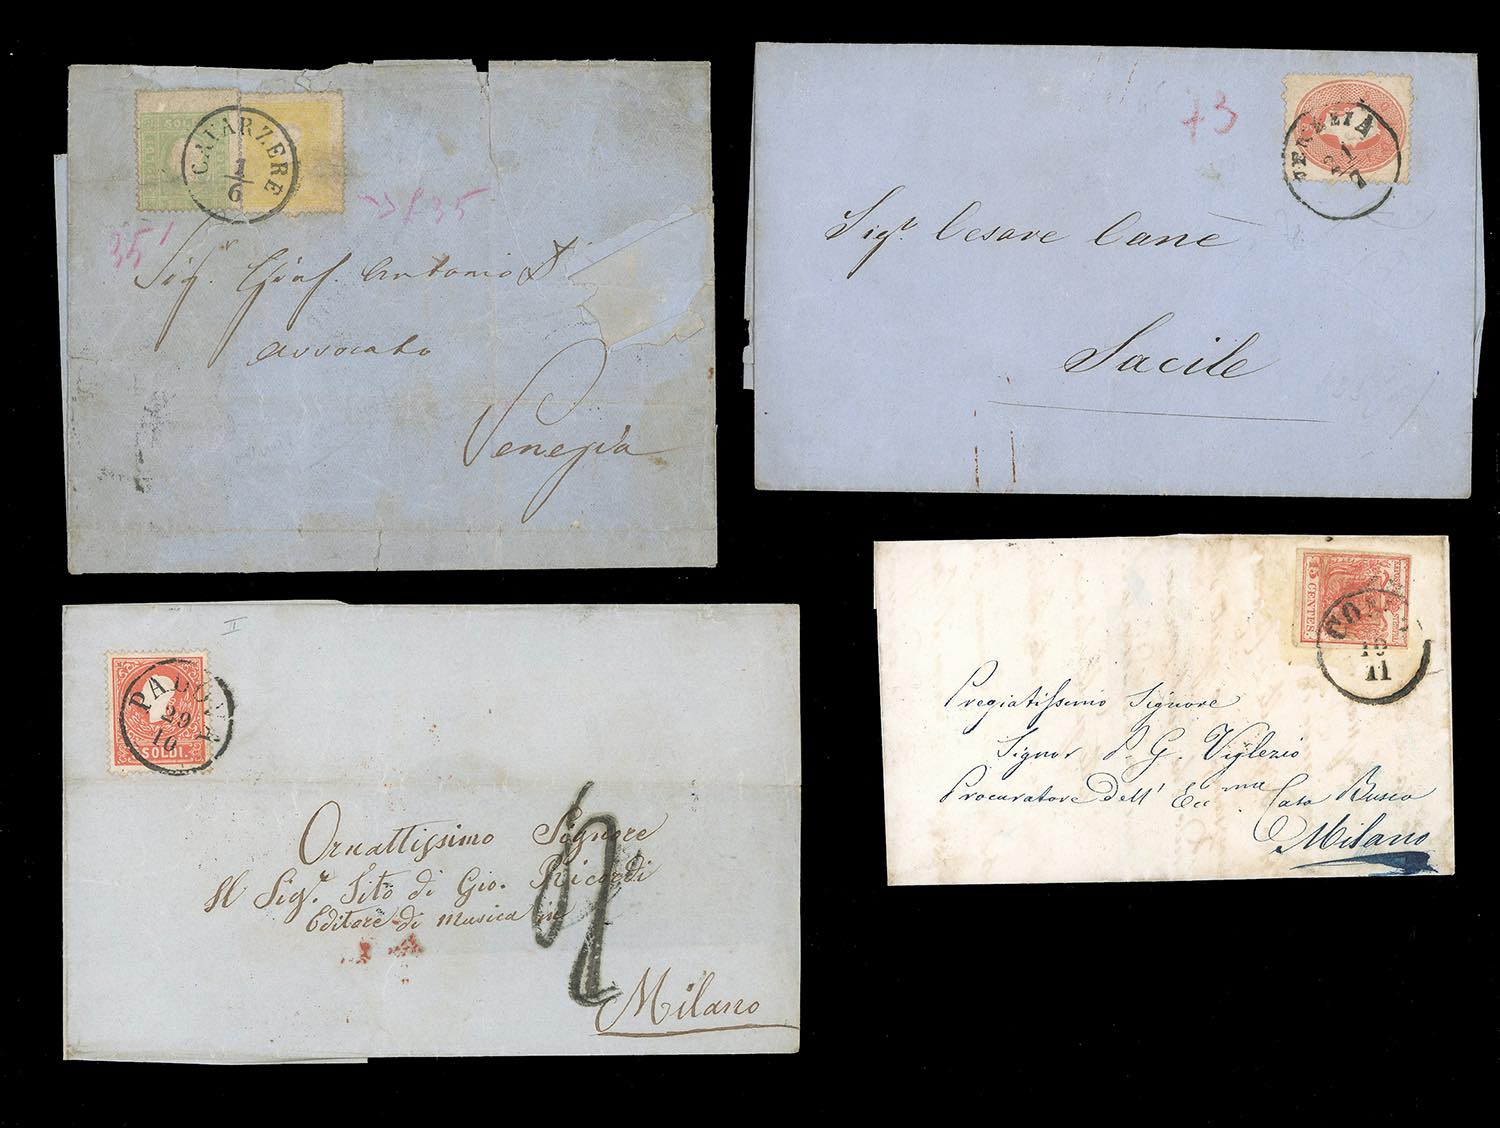 SOLDI
CAVARZERE
1
6
35
35
Sigr. Antonio
avvocato
Venezia
73
VENEZIA
Sigr. Cesare Canè
Sacile
II
PADOVA
29
10
SOLDI.
Ornattissimo Signore
Il Sigr. Tito di Gio. Ricordi
Editore di musica in
Milano
15 CENTES.
COMO
19
11
Pregiatissimo Signore
Signor P. G. Viglezio
Procuratore dell' Eccma Casa Busca
Milano